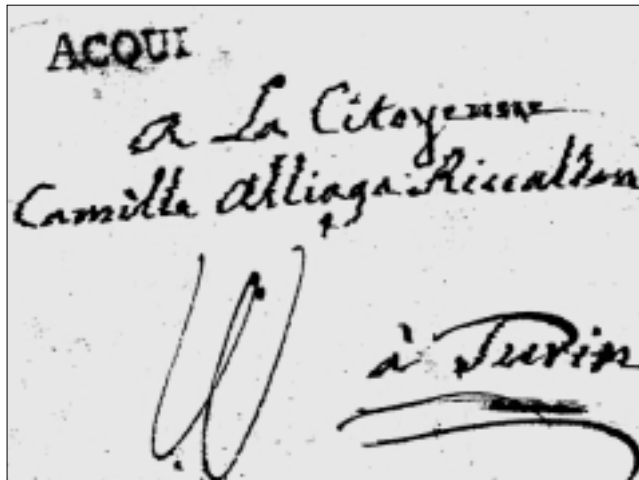 ACQUI
a La Citoyenne
Camilla Alliaga
à Turin